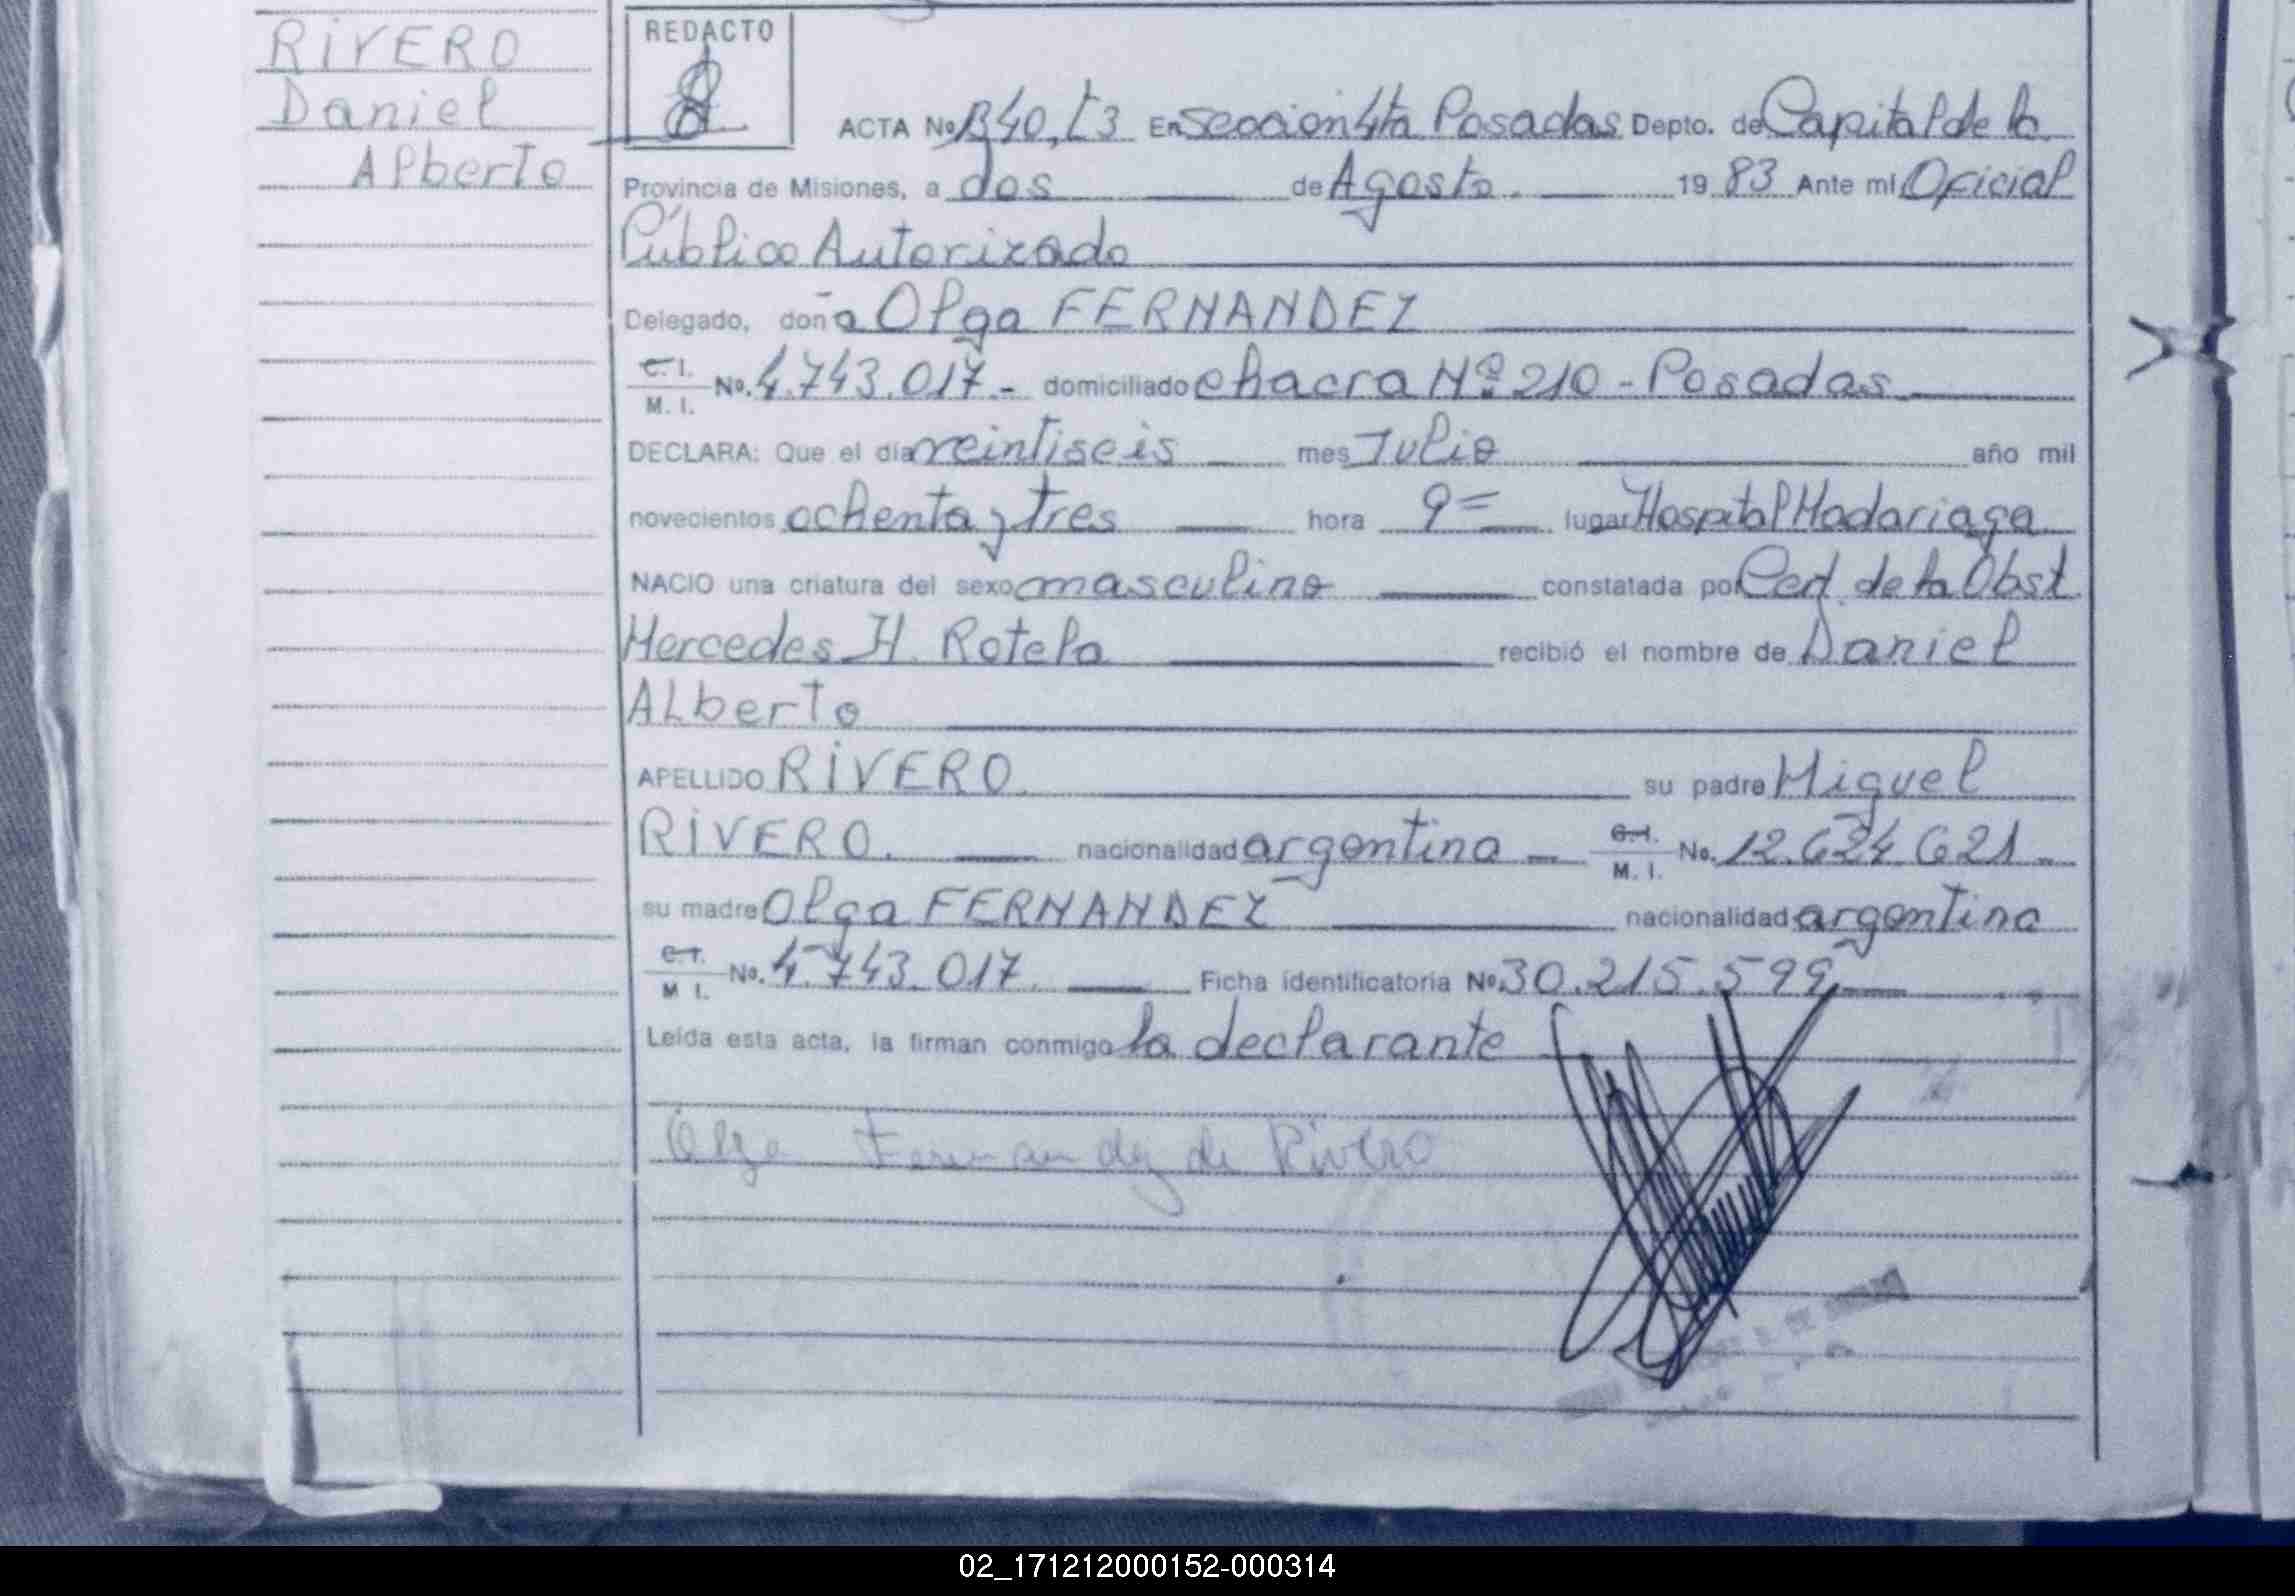 RIVERO
Daniel
Alberto
REDACTO
ACTA No B40, t3 En Seccion 4ta Posadas Depto. de Capital de la
Provincia de Misiones, a dos de Agosto. 19 83 Ante mi Oficial
Público Autorizado
Delegado, doña Olga FERNANDEZ
C. I.
M. I. No. 4.743.017.- domiciliado chacra Nº 210 - Posadas
DECLARA: Que el día veintiseis mes Julio año mil
novecientos ochenta y tres hora 9= lugar Hospital Madariaga
NACIO una criatura del sexo masculino constatada por Ced. de la Obst.
Mercedes H. Rotela recibió el nombre de Daniel
ALberto
APELLIDO RIVERO. su padre Miguel
RIVERO. nacionalidad argentina C.I.
M. I. No. 12.624 621
su madre Olga FERNANDEZ nacionalidad argentina
C.I.
M I. No. 4.743.017. Ficha identificatoria No. 30.215.599
Leída esta acta, la firman conmigo la declarante
Olga Fernandez de Rivero
02_171212000152-000314